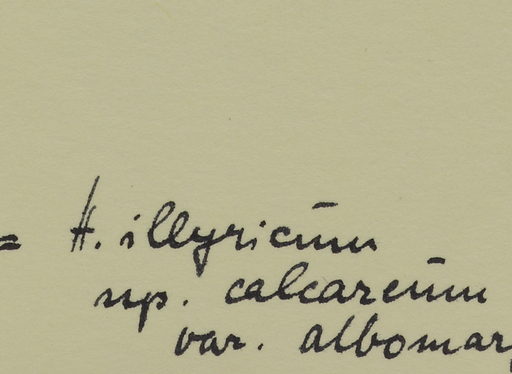 = H. illyricum
ssp. calcareum
var. albomar